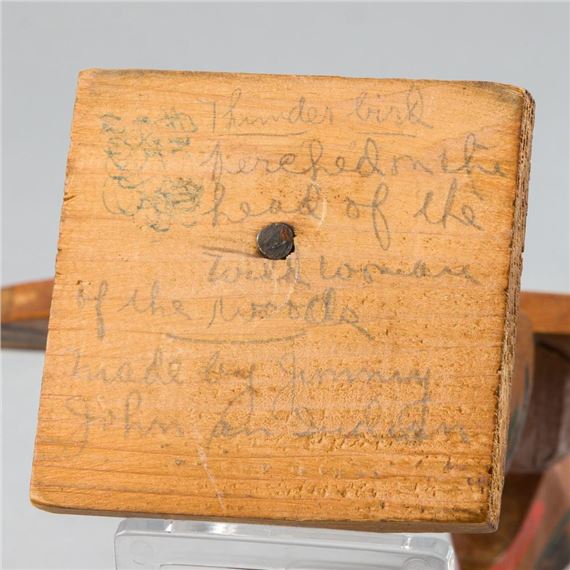 Thunder bird
perched on the
head of the
wild woman
of the woods
made by Jimmy
John an Indian